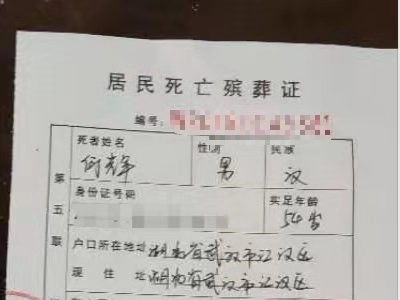 居民死亡殡葬证
编号:
死者姓名 性别 民族
何辉 男 汉
第五联
身份证号码 实足年龄
54岁
户口所在地址 湖北省武汉市江汉区
现住址 湖北省武汉市江汉区